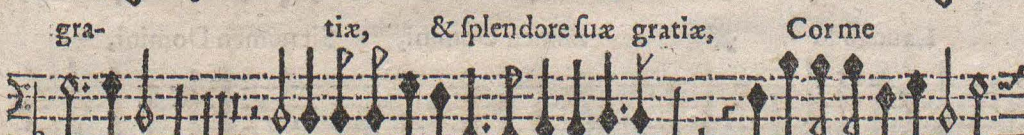 gra- tiæ, & ſplendore ſuæ gratiæ, Cor me